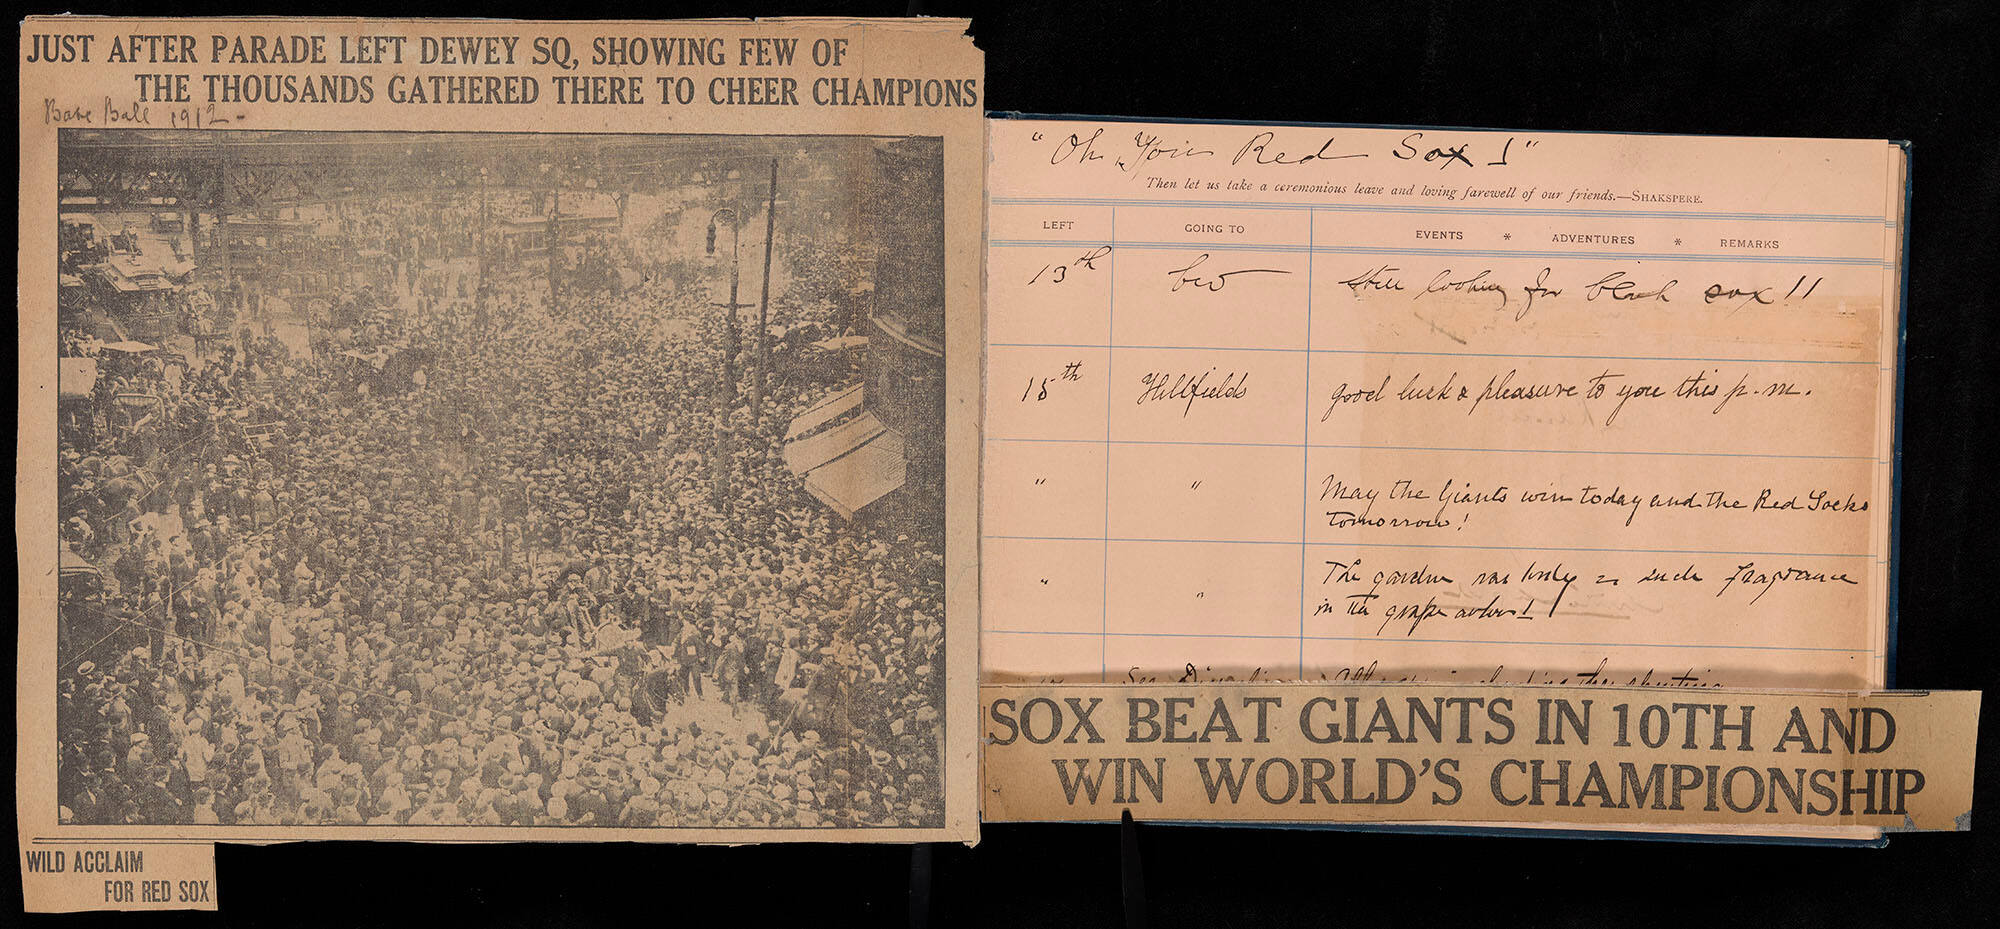 JUST AFTER PARADE LEFT DEWEY SQ, SHOWING FEW OF
THE THOUSANDS GATHERED THERE TO CHEER CHAMPIONS
Base Ball 1912-
WILD ACCLAIM
FOR RED SOX
"Oh, You Red Sox!"
Then let us take a ceremonious leave and loving farewell of our friends.—SHAKSPERE.
LEFT GOING TO EVENTS * ADVENTURES * REMARKS
13th still looking for black sox!!
15th Hillfields good luck & pleasure to you this p.m.
" " May the Giants win today and the Red Socks
tomorrow!
" " The garden was lovely & such fragrance
in the grape arbor!
SOX BEAT GIANTS IN 10TH AND
WIN WORLD'S CHAMPIONSHIP